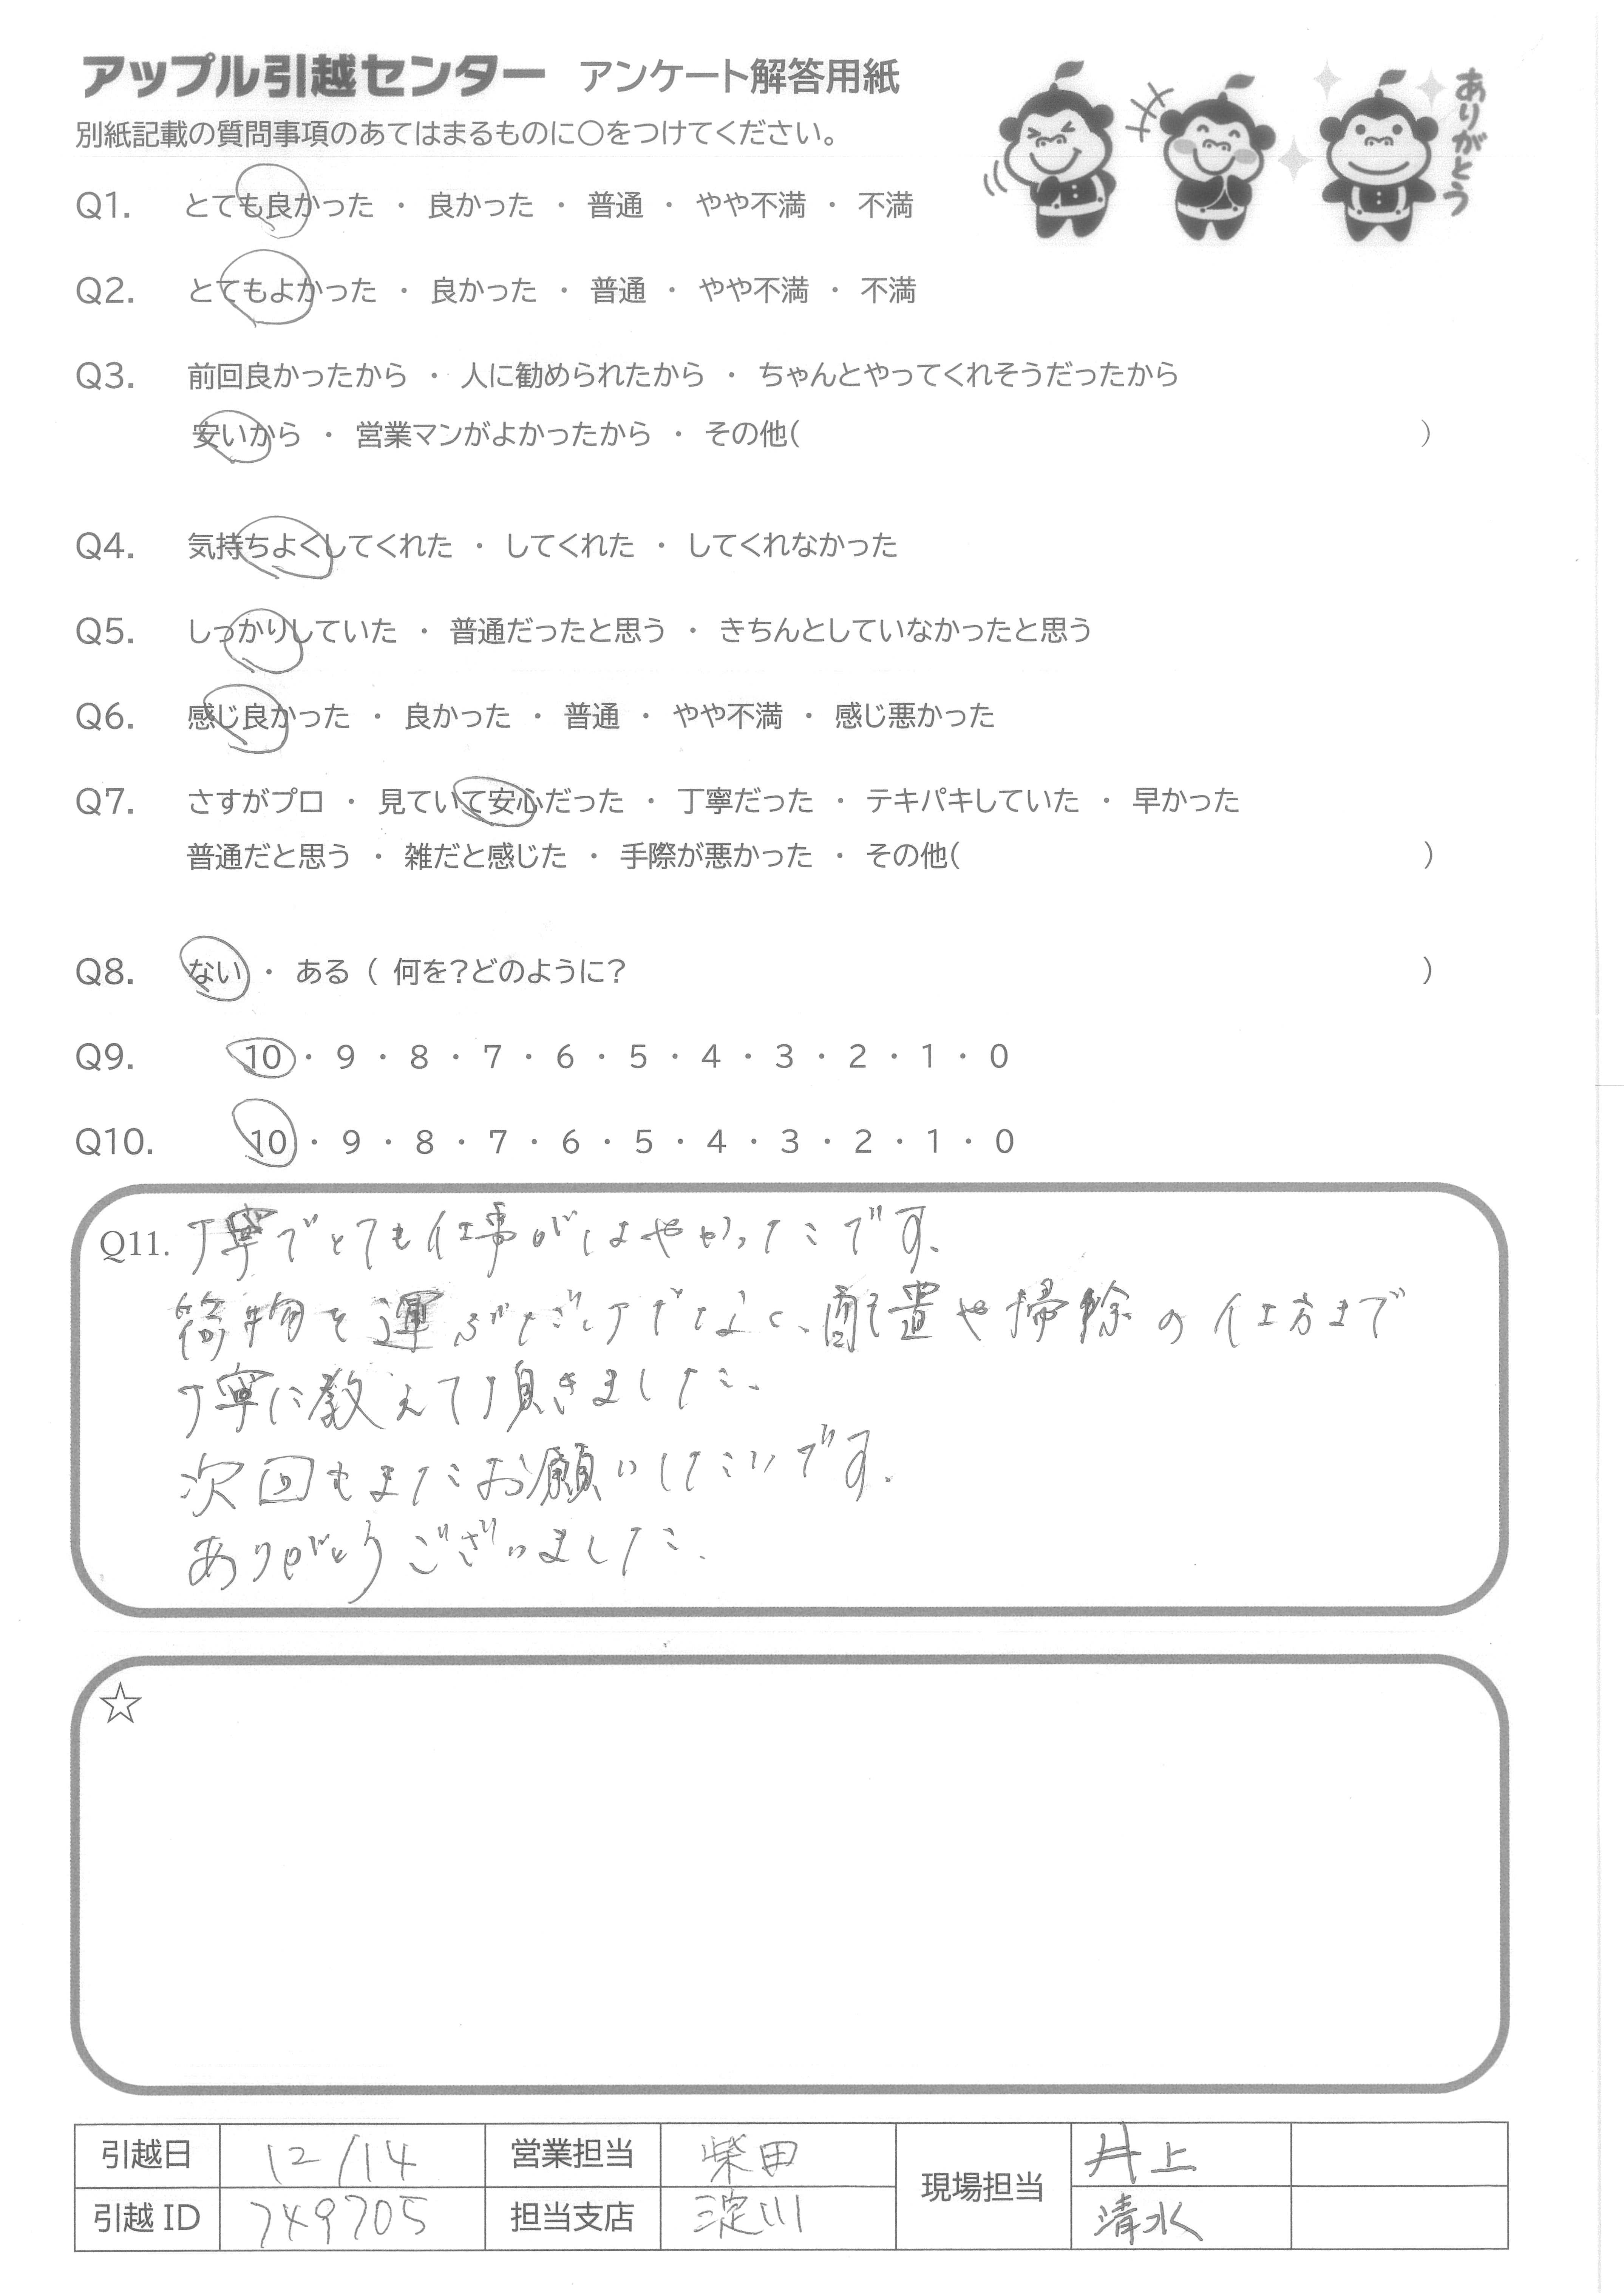 アップル引越センター アンケート解答用紙
ありがとう
別紙記載の質問事項のあてはまるものに〇をつけてください。
Q1. とても良かった ・ 良かった ・ 普通 ・ やや不満 ・ 不満
Q2. とてもよかった ・ 良かった ・ 普通 ・ やや不満 ・ 不満
Q3. 前回良かったから ・ 人に勧められたから ・ ちゃんとやってくれそうだったから
安いから ・ 営業マンがよかったから ・ その他( )
Q4. 気持ちよくしてくれた ・ してくれた ・ してくれなかった
Q5. しっかりしていた ・ 普通だったと思う ・ きちんとしていなかったと思う
Q6. 感じ良かった ・ 良かった ・ 普通 ・ やや不満 ・ 感じ悪かった
Q7. さすがプロ ・ 見ていて安心だった ・ 丁寧だった ・ テキパキしていた ・ 早かった
普通だと思う ・ 雑だと感じた ・ 手際が悪かった ・ その他( )
Q8. ない ・ ある ( 何を?どのように? )
Q9. 10 ・ 9 ・ 8 ・ 7 ・ 6 ・ 5 ・ 4 ・ 3 ・ 2 ・ 1 ・ 0
Q10. 10 ・ 9 ・ 8 ・ 7 ・ 6 ・ 5 ・ 4 ・ 3 ・ 2 ・ 1 ・ 0
Q11. 丁寧でとても仕事がはやかったです。
荷物を運ぶだけでなく、配置や掃除の仕方まで
丁寧に教えて頂きました。
次回もまたお願いしたいです。
ありがとうございました。
☆
引越日 12/14 営業担当 柴田 現場担当 井上
引越ID 749705 担当支店 淀川 清水